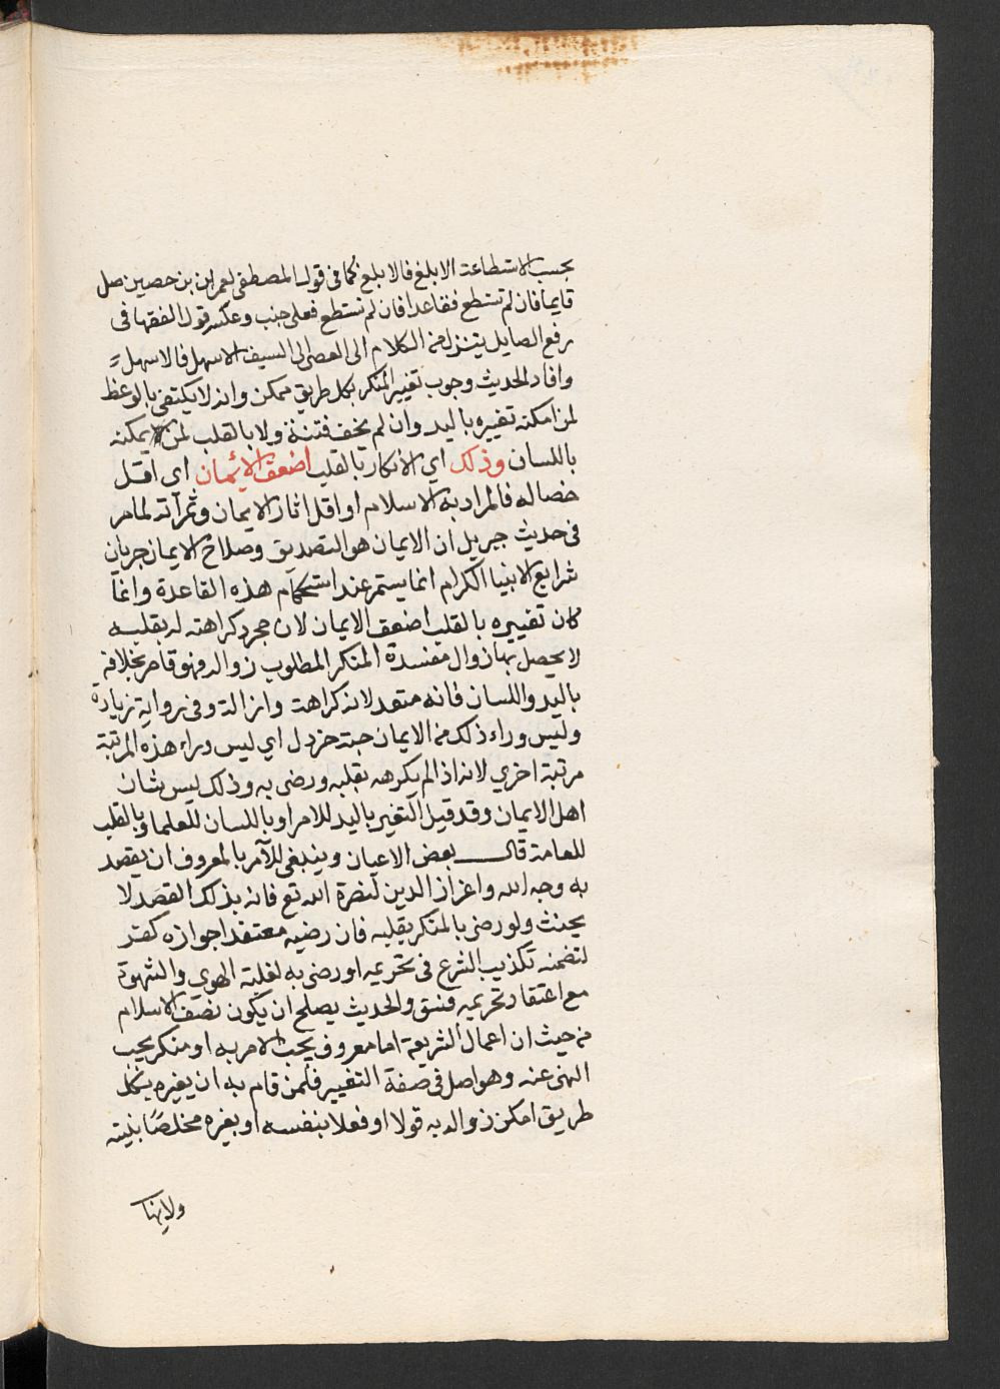 بحسب الاستطاعة الابلغ فالابلغ كما في قول المصطفى لعمران بن حصين صل
قايما فان لم تستطع فقاعدا فان لم تستطع فعلى جنب وعكسه قول الفقها في
رفع الصايل يتنزل من الكلام الى العصى الى السيف الاسهل فالاسهل
وافاد الحديث وجوب تغيير المنكر بكل طريق ممكن وانه لا يكتفى بالوعظ
لمن امكنه تغييره باليد وان لم يخف فتنة ولا بالقلب لمن يمكنه
باللسان وذلك اي الانكار بالقلب اضعف الائمان اي اقل
خصاله فالمراد به الاسلام او اقل اثار الايمان وثمرآته لما مر
في حديث جبريل ان الايمان هو التصديق وصلاح الايمان جريان
شرايع الانبيا الكرام انما يستمر عند استحكام هذه القاعدة وانما
كان تغييره بالقلب اضعف الايمان لان مجرد كراهته له بقلبه
لا يحصل بها زوال مفسدة المنكر المطلوب زواله فهو قاصر بخلافه
باليد واللسان فانه متعد لانه كراهة وازالة وفي رواية زيادة
وليس وراء ذلك من الايمان حبة خردل اي ليس وراء هذه المرتبة
مرتبة اخري لانه اذا لم يكرهه بقلبه ورضي به وذلك ليس بشان
اهل الايمان وقد قيل التغير باليد للامرا وباللسان للعلما وبالقلب
للعامة قال بعض الاعيان وينبغي للآمر بالمعروف ان يقصد
به وجه الله واعزاز الدين لنصرة الله تع فانه بذلك القصد لا
يحنث ولو رضي بالمنكر بقلبه فان رضيه معتقدا جوازه كفر
لتضمنه تكذيب الشرع في تحريمه او رضي به لغلبة الهوي والشهوة
مع اعتقاد تحريمه فسق والحديث يصلح ان يكون نصف الاسلام
من حيث ان اعمال الشريعة اما معروف يجب الامر به او منكر يجب
النهي عنه وهو اصل في صفة التغيير فلمن قام به ان يغيره بكل
طريق امكن زواله به قولا او فعلا بنفسه او بغيره مخلصًا بنيته